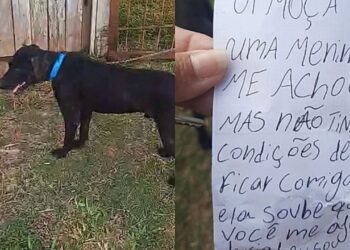 OI MOÇA
UMA MENIN
ME ACHO
MAS NÃO TIN
CONDIÇÕES DE
FICAR COMIGO
ELA SOUBE QU
VOCÊ ME AJ